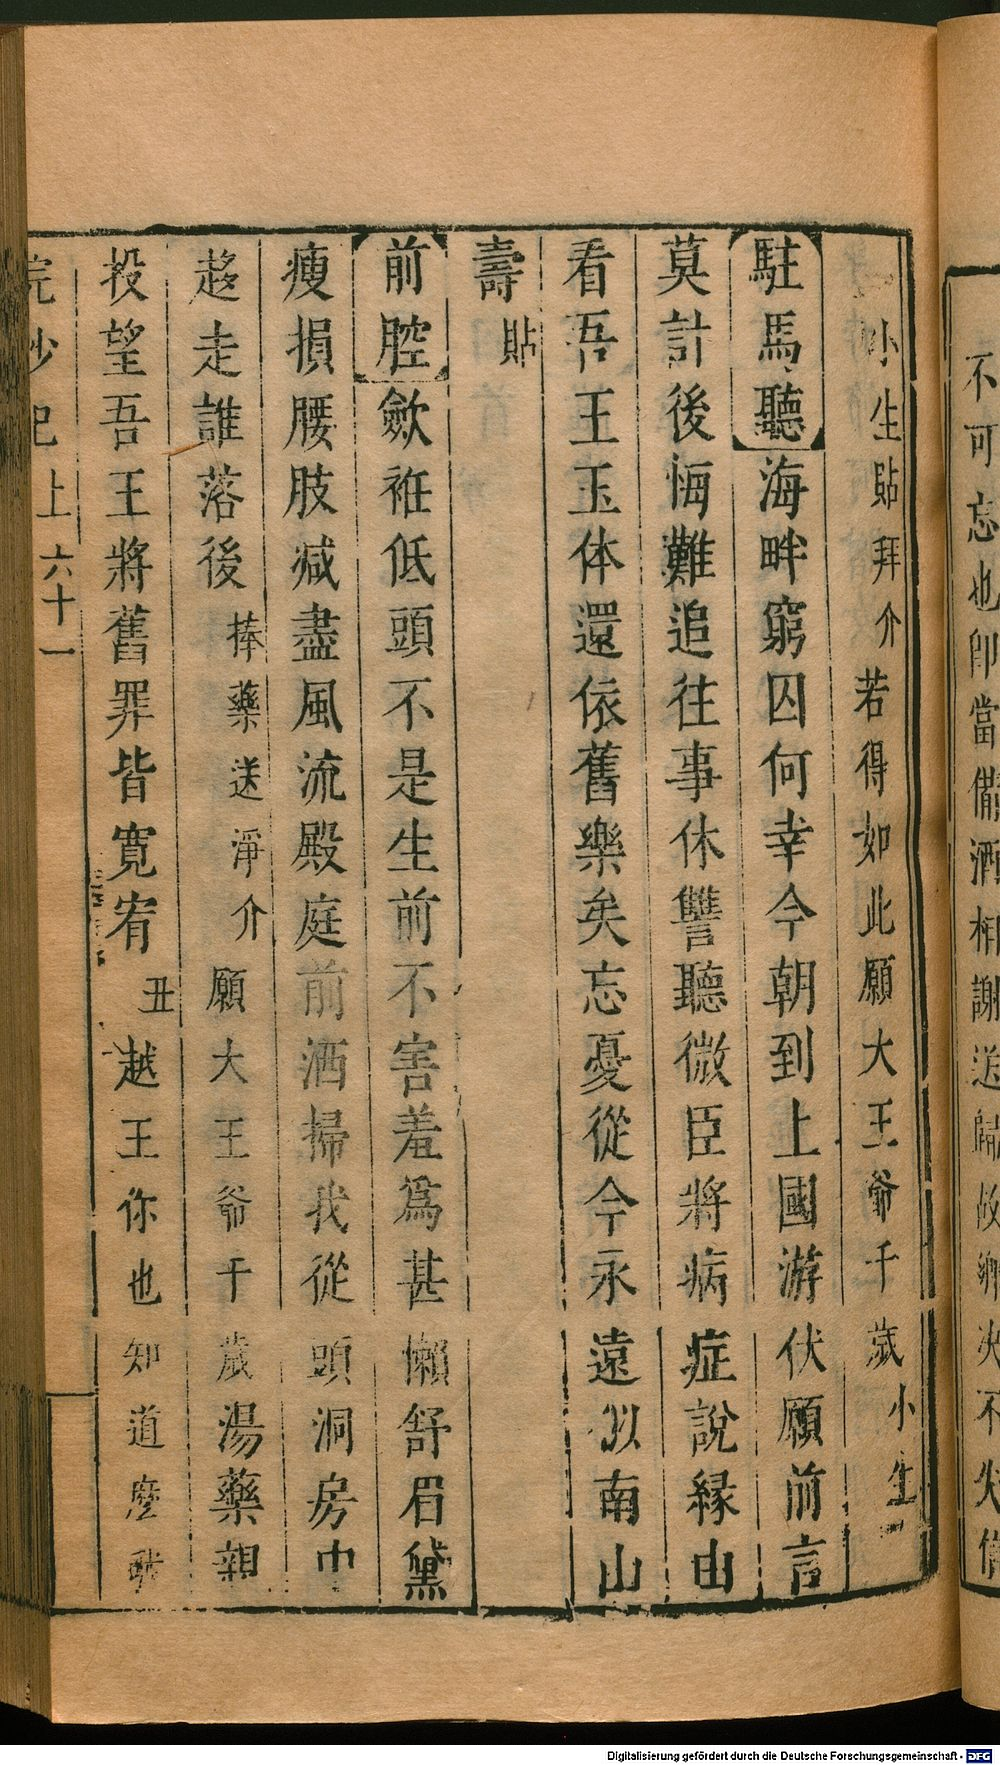 不可忘也卽當備酒相謝送歸故鄉決不失信
小生貼拜介若得如此願大王爺千歲小生
駐馬聽海畔窮囚何幸今朝到上國游伏願前言
莫計後悔難追往事休讐聽微臣將病症說緣由
看吾王玉体還依舊樂矣忘憂從今永遠似南山
壽貼
前腔歛袵低頭不是生前不害羞爲甚懶舒眉黛
瘦損腰肢減盡風流殿庭前洒掃我從頭洞房中
趍走誰落後捧藥送淨介願大王爺千歲湯藥親
投望吾王將舊罪皆寬宥丑越王你也知道麽
浣紗記上 六十一
Digitalisierung gefördert durch die Deutsche Forschungsgemeinschaft - DFG